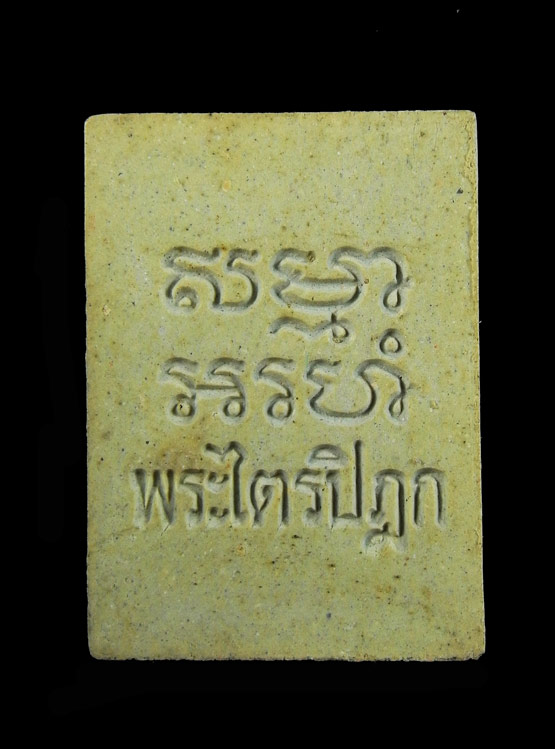 สมฺมา
อรหํ
พระไตรปิฎก